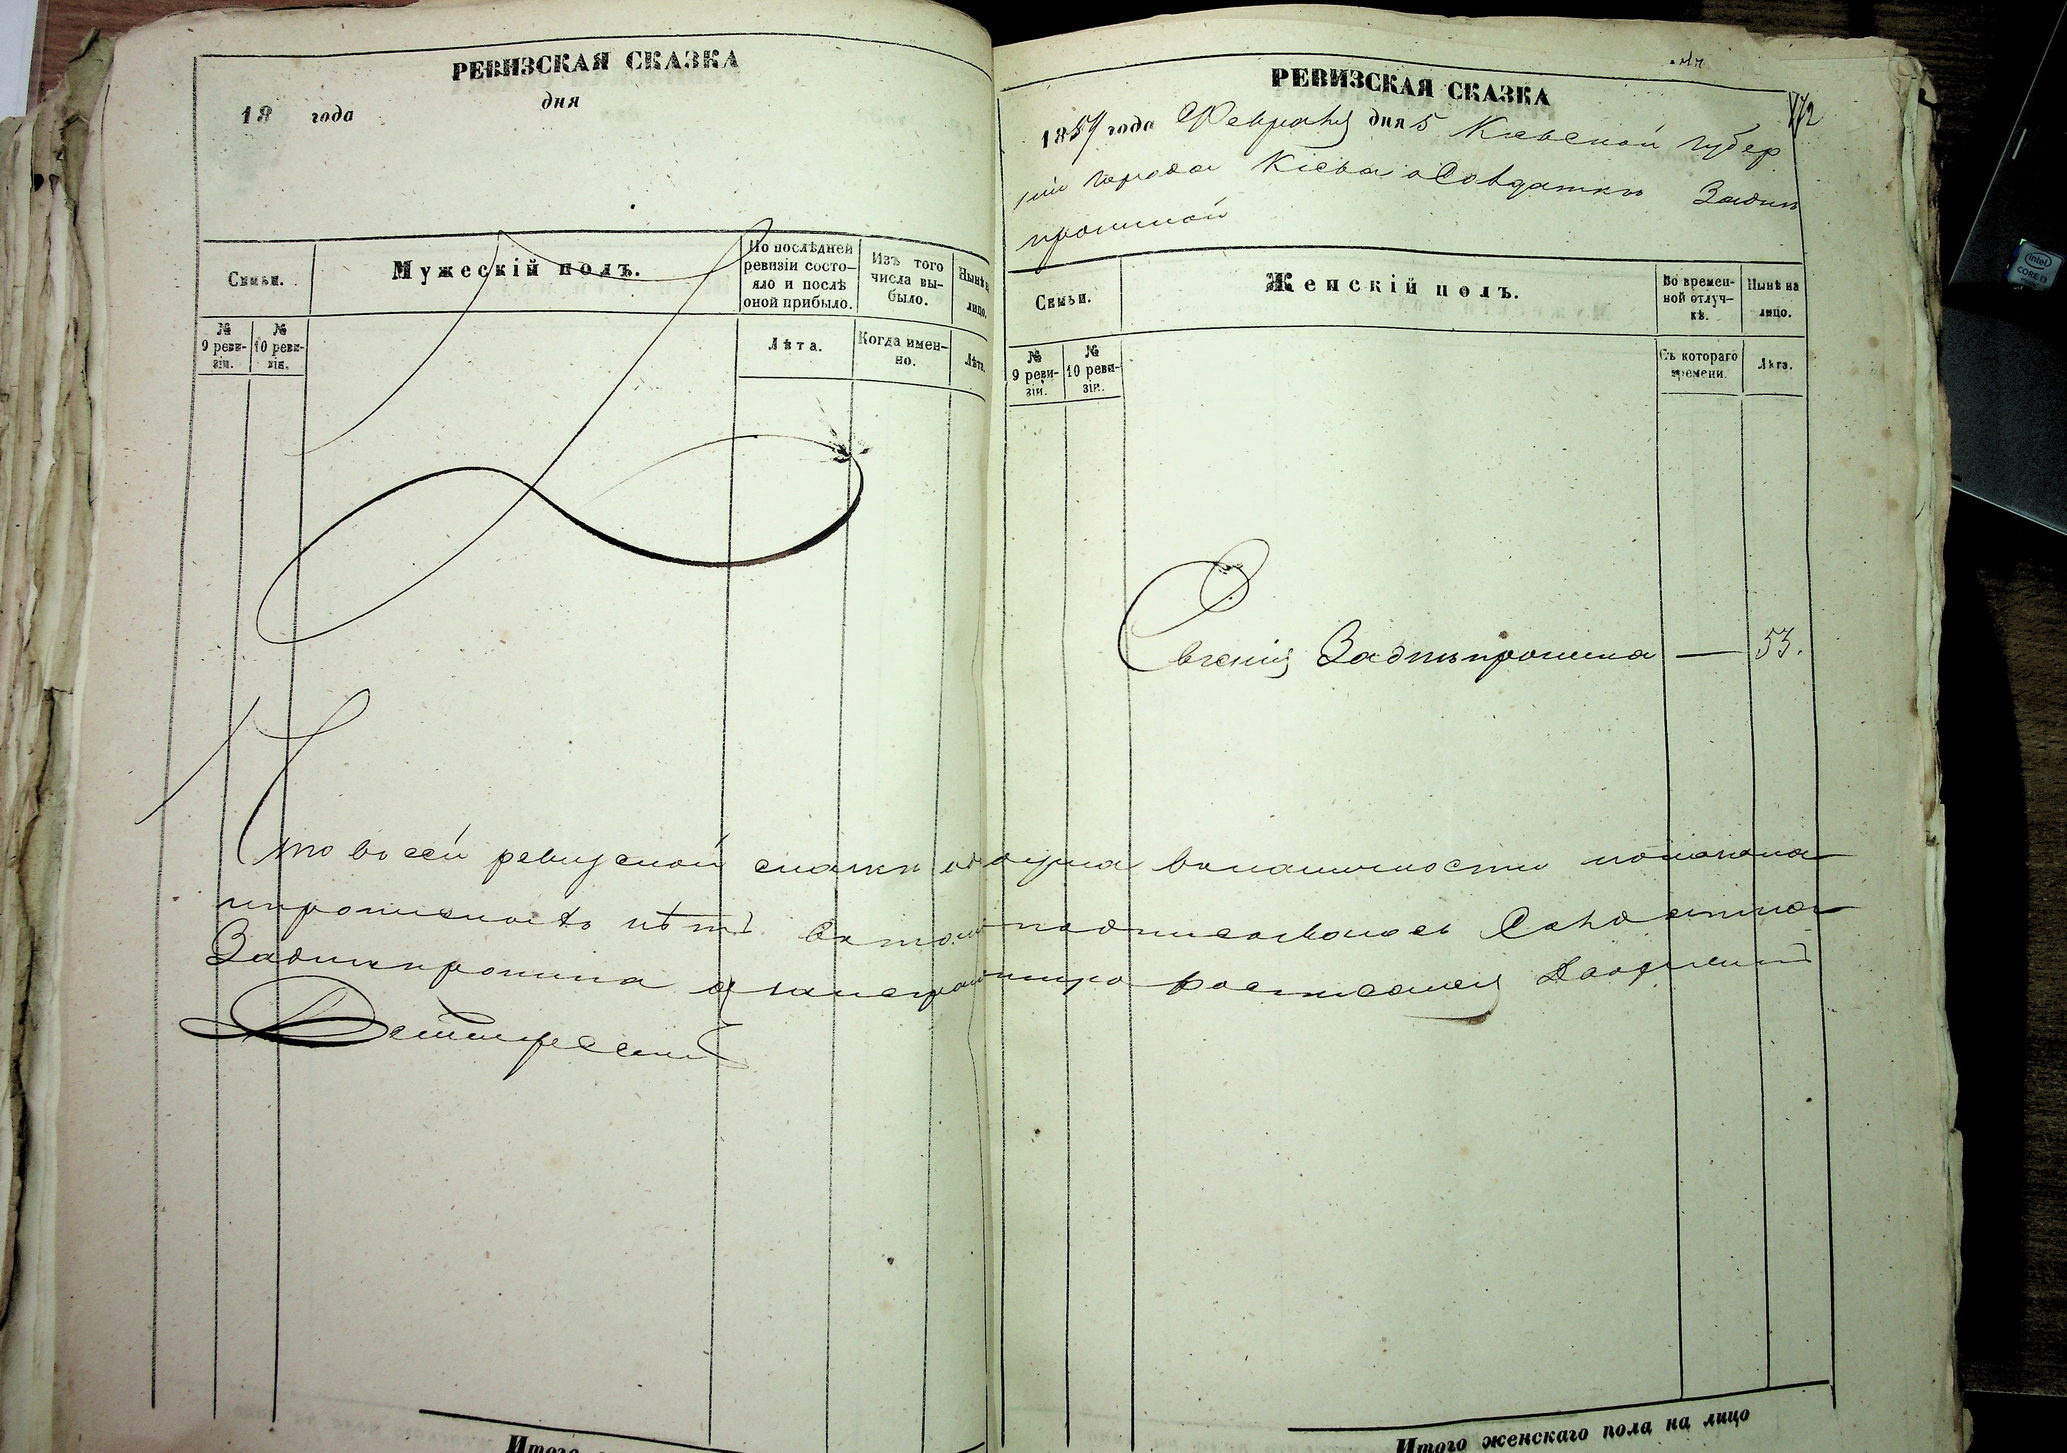 РЕВИЗСКАЯ СКАЗКА
18 года дня
Семьи.
Мужескій полъ.
По послѣдней ревизіи состо-
яло и послѣ
оной прибыло.
Изъ того
числа вы-
было.
Нынѣ на
лицо.
№
9 реви-
зіи.
№
10 реви-
зіи.
Лѣта.
Когда имен-
но.
Лѣта.
РЕВИЗСКАЯ СКАЗКА
172
года Февраля дня 5 Кіевской губер
ніи города Кіева о Солдаткѣ Задне
прошной
Семьи.
Женскій полъ.
Во времен-
ной отлуч-
кѣ.
Нынѣ на
лицо.
№
9 реви-
зіи.
№
10 реви-
зіи.
Съ котораго
времени.
Лѣта.
Евгенія Заднепрошна — 53.
Что въ сей ревизской сказкѣ одна душа въ наличности показана
и прописныхъ нѣтъ въ томъ подписываюсь Солдатка
Заднепрошна а вместо
Итого
Итого женскаго пола на лицо
intel
CORE i3